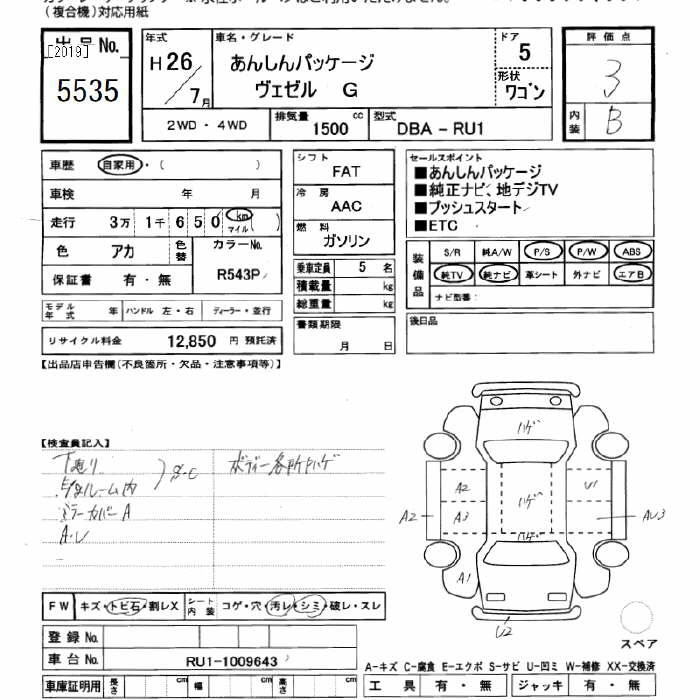 (複合機)対応用紙
出品No.
[2019]
5535
年式
H26/7月
車名・グレード
あんしんパッケージ
ヴェゼル G
ドア
5
形状
ワゴン
評価点
3
内装
B
2WD・4WD
排気量
1500 cc
型式
DBA-RU1
車歴 自家用・( )
車検 年 月
走行 3万 1千 650 km マイル( )
色 アカ 色替 カラーNo.
R543P
保証書 有・無
モデル年式 年 ハンドル 左・右 ディーラー・並行
リサイクル料金 12,850 円 預託済
シフト
FAT
冷房
AAC
燃料
ガソリン
乗車定員 5 名
積載量 kg
総重量 kg
書類期限
月 日
セールスポイント
■あんしんパッケージ
■純正ナビ、地デジTV
■プッシュスタート
■ETC
装備品
S/R 純A/W P/S P/W ABS
純TV 純ナビ 革シート 外ナビ エアB
ナビ型番:
後日品
【出品店申告欄(不良箇所・欠品・注意事項等)】
【検査員記入】
下廻り
ルーム内
S・C
ボディー各所ハゲ
ミラーカバーA
A・U
ハゲ
ハゲ
ハゲ
A2
A2
A3
A1
U1
AU3
U2
スペア
FW キズ・トビ石・割レX シート内装 コゲ・穴・汚レ・シミ・破レ・スレ
登録No.
車台No. RU1-1009643
車庫証明用 長さ cm 幅 cm 高さ cm
A-キズ C-腐食 E-エクボ S-サビ U-凹ミ W-補修 XX-交換済
工具 有・無 ジャッキ 有・無